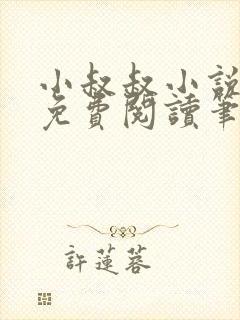 小叔叔小說
免費閱讀筆
許蓮蓉